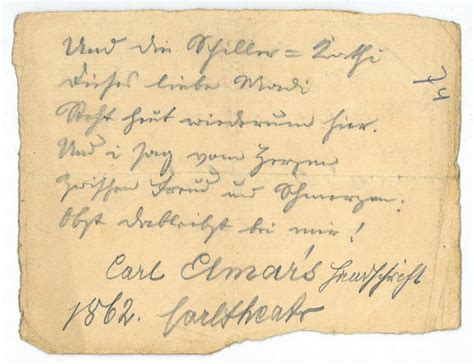 Und die Schiller = Kathi
Dieses liebe Madi
Steht heut wiederum hier.
Und i sag vom Herzen
Zwischen Freud und Schmerzen:
Obst dableibst bei mir!
Carl Elmar's Handschrift
1862. Carltheater